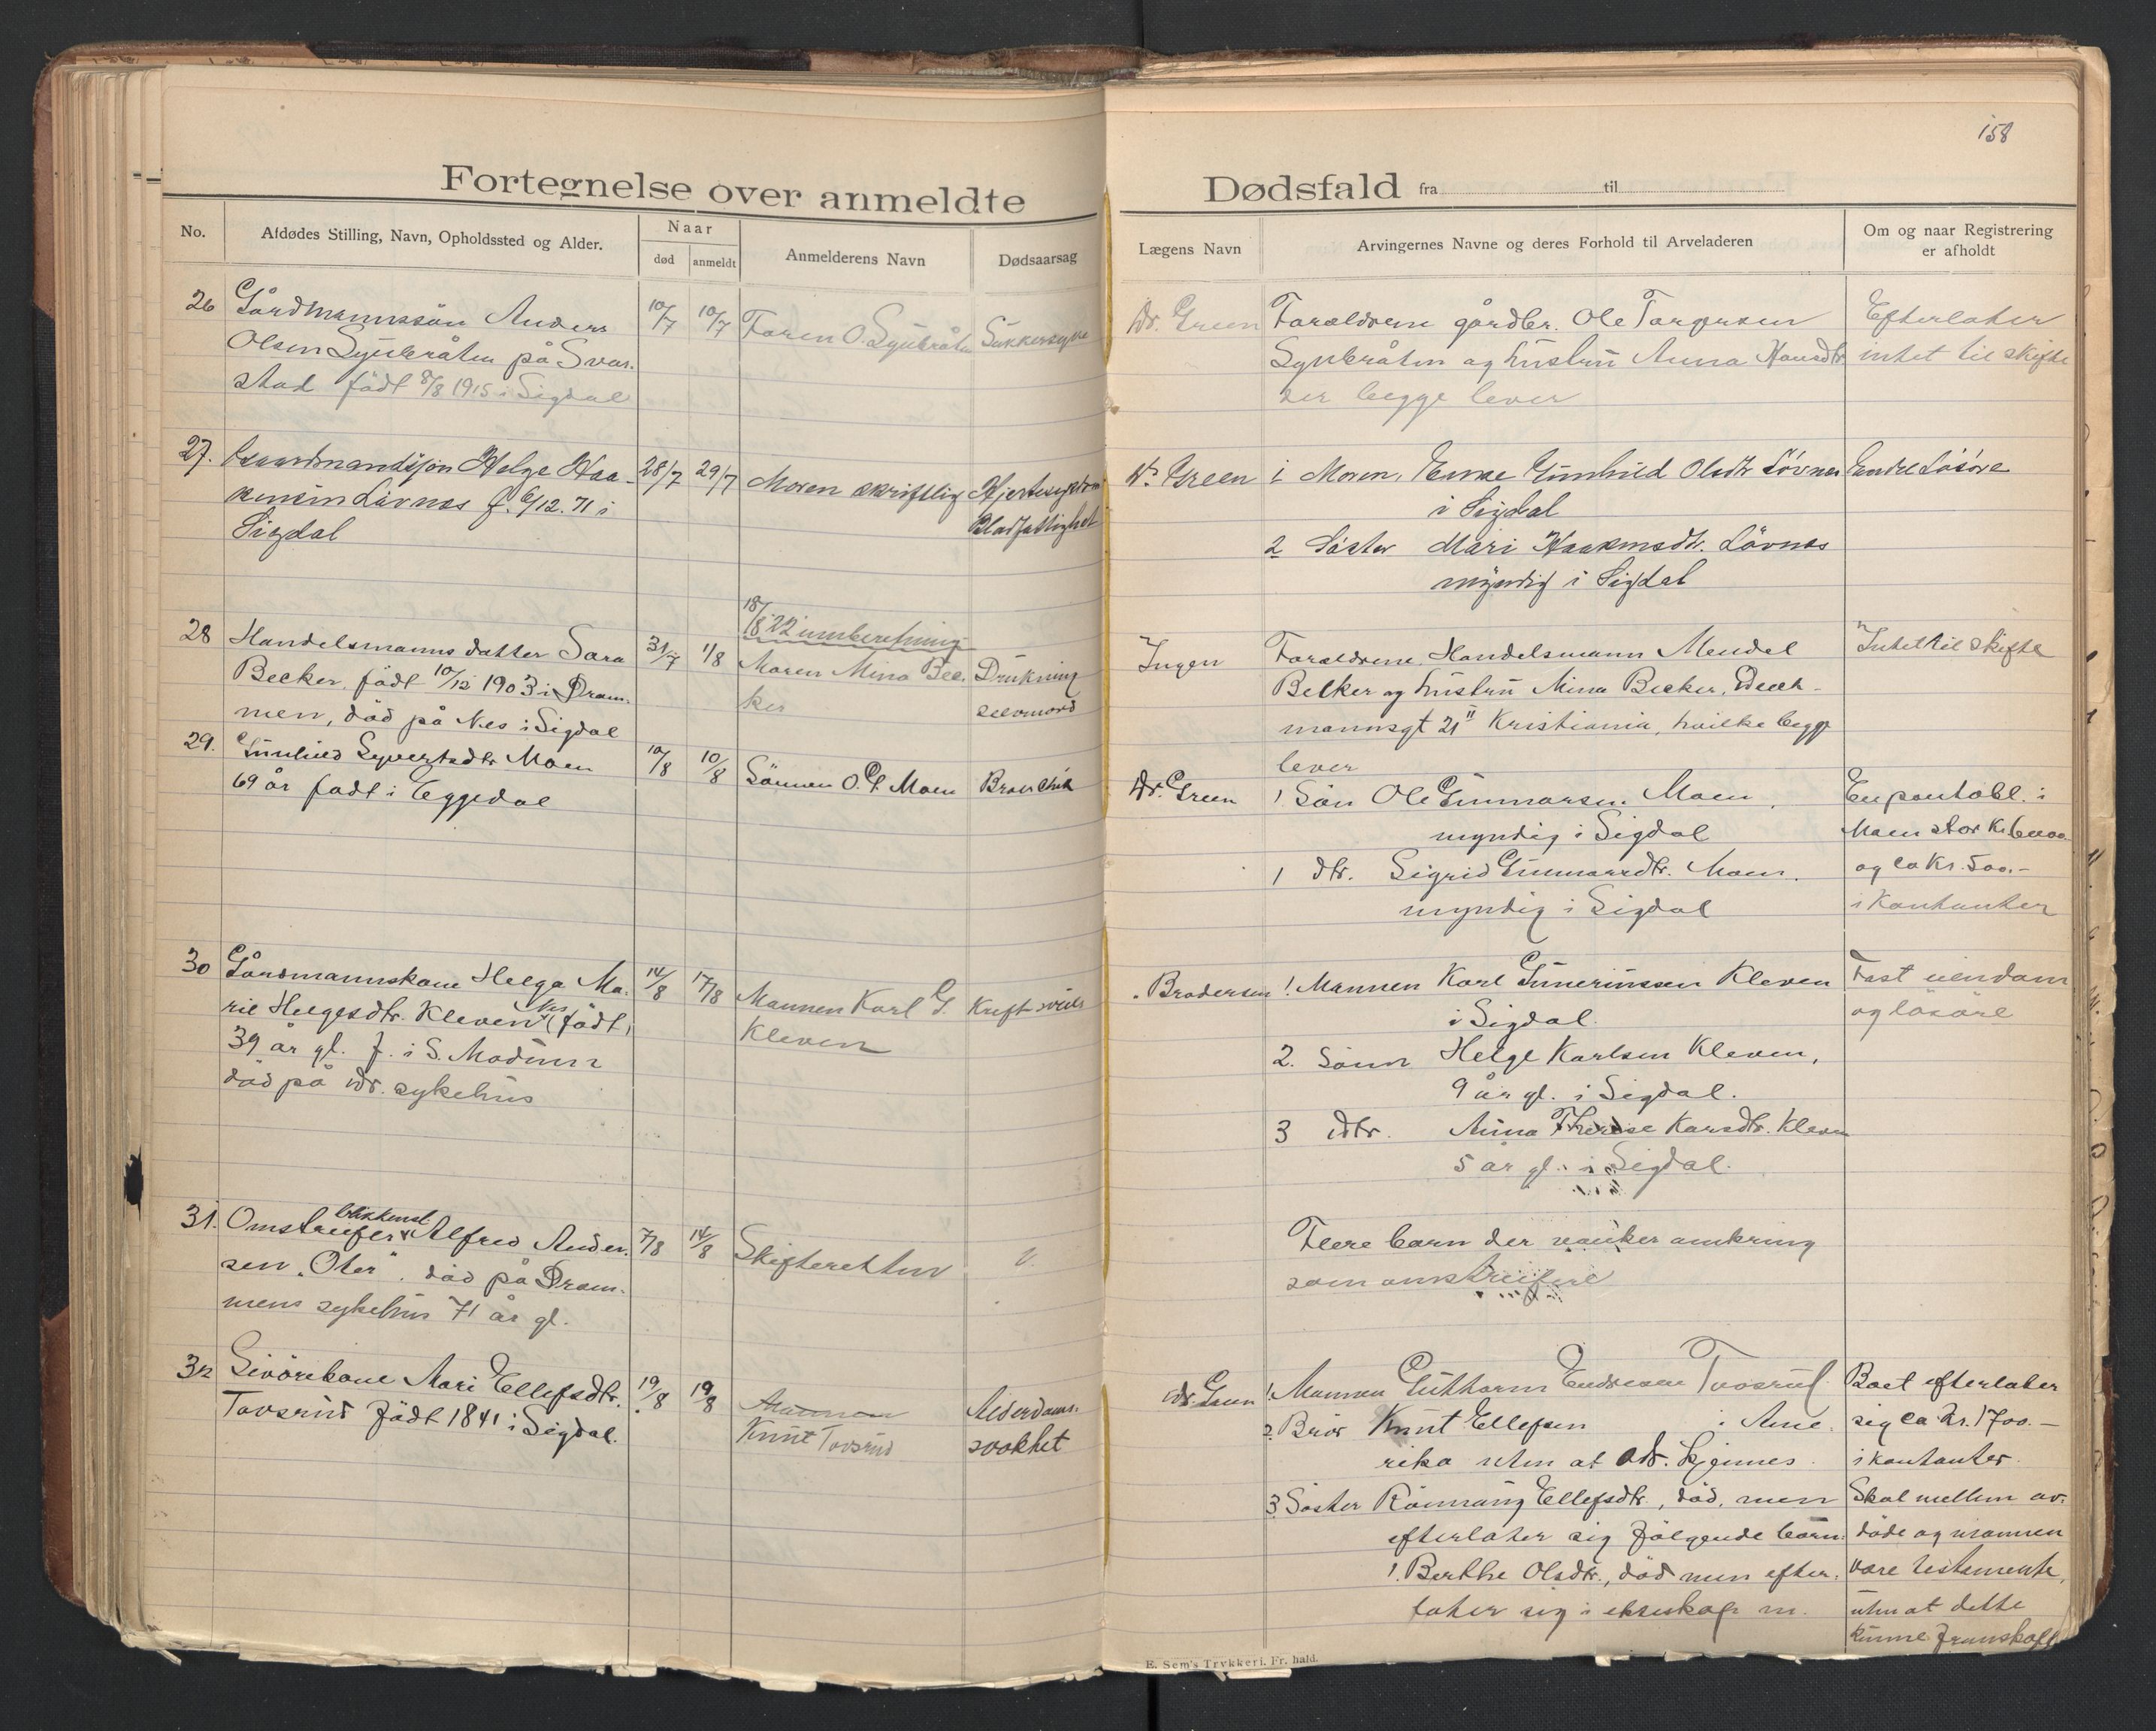 158
Fortegnelse over anmeldte
Dødsfald fra til
No.
Afdødes Stilling, Navn, Opholdssted og Alder.
Naar
død
anmeldt
Anmelderens Navn
Dødsaarsag
Lægens Navn
Arvingernes Navne og deres Forhold til Arveladeren
Om og naar Registrering
er afholdt
26 Gårdmannssön Anders 10/7 10/7 Faren O. Sukkersyke
Olsen på Svar-
stad födt 8/8 1915 i Sigdal
Dr. Green Foreldrene gårdbr. Ole
og hustru Anna Hansdtr.
der begge lever
Efterlater
intet til skifte
27. Gaardmandssön Helge Haa- 28/7 29/7 Moren skriftlig Hjertesykdom
kensen Lövnes f. 6/12.71 i Blodfattighet
Sigdal
Dr. Green 1 Moren, Enke Gunhild Olsdtr Lövnes Endel Lösöre
i Sigdal
2 Söster Mari Haakensdtr. Lövnes
myndig i Sigdal
18/8 22 innberetning
28 Handelsmanns datter Sara 31/7 1/8 Moren Mina Bec- Drukning
Becker, födt 10/12 1903 i Dram- ker selvmord
men, död på Nes i Sigdal
Ingen Foreldrene, Handelsmann Mendel
Becker og hustru Mina Becker,
mannsgt 21 II Kristiania, hvilke begge
lever
Intet til skifte
29. Gunhild Syvertsdtr Moen 10/8 10/8 Sönnen O. G. Moen
69 år födt i Eggedal
Dr. Green 1 Sön Ole Gunnarsen Moen,
myndig i Sigdal
1 dtr. Sigrid Gunnarsdtr. Moen.
myndig i Sigdal
En pantobl. i
Moen stor Kr.
og ca Kr. 500.-
i Kontanter
30 Gårdmannskone Helga Ma- 14/8 17/8 Mannen Karl G. Kreft
rie Helgesdtr. Kleven Nes (födt) Kleven
39 år gl. f. i S. Modum
död på Dr. sykehus
Brodersen 1. Mannen Karl Kleven
i Sigdal.
2. Sönn Helge Karlsen Kleven,
9 år gl. i Sigdal.
3 Dtr. Anna Therese Karsdtr. Kleven
5 år gl. i Sigdal.
Fast eiendom
og lösöre
31. Omstreifer blikkensl. Alfred Ander- 7/8 14/8 Skifteretten
sen "Oter". död på Dram-
mens sykehus 71 år gl.
Flere barn der vanker omkring
som omstreifere
32 Livörekone Mari Ellefsdtr. 19/8 19/8 Mannen Alderdoms-
Tovsrud födt 1841 i Sigdal. Knut Tovsrud svakhet
Dr. Green 1. Mannen Guttorm Endresen Tovsrud
2. Bror Knut Ellefsen i Ame-
rika uten at adr. kjennes.
3 Söster Rönnaug Ellefsdtr., död, men
efterlater sig fölgende barn:
1. Berthe Olsdtr., död men efter-
later sig i ekteskap m.
Boet efterlater
sig ca kr. 1700.-
i kontanter.
Skal mellem av-
döde og mannen
vare testamente,
uten at dette
kunne fremskaff
E. Sem's Trykkeri. Fr.hald.